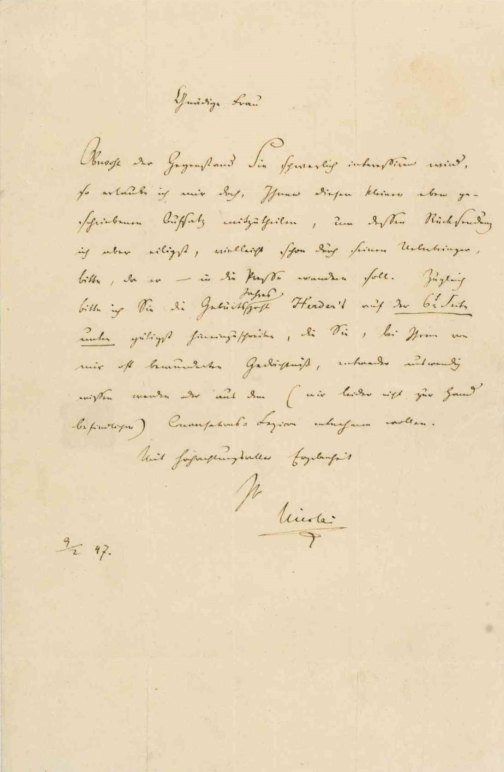 Gnädige Frau
Obwohl der Gegenstand Sie schwerlich interessiren wird,
so erlaube ich mir doch, Ihnen diesen kleinen eben ge-
schriebenen Aufsatz mitzutheilen, um dessen Rücksendung
ich aber eiligst, vielleicht schon durch seinen Ueberbringer,
bitte, da er — in die Presse wandern soll. Zugleich
bitte ich Sie die Geburts Jahres Herder's auf der 6t. Seite
unten gütigst hineinzuschreiben, die Sie, bei Ihrem von
mir oft bewunderten Gedächtniß, entweder auswendig
wissen werden oder aus dem (mir leider nicht zur Hand
befindlichen) Conversations-Lexicon entnehmen wollen.
Mit hochachtungsvoller Ergebenheit
Ihr
Nicolai
9/2 47.